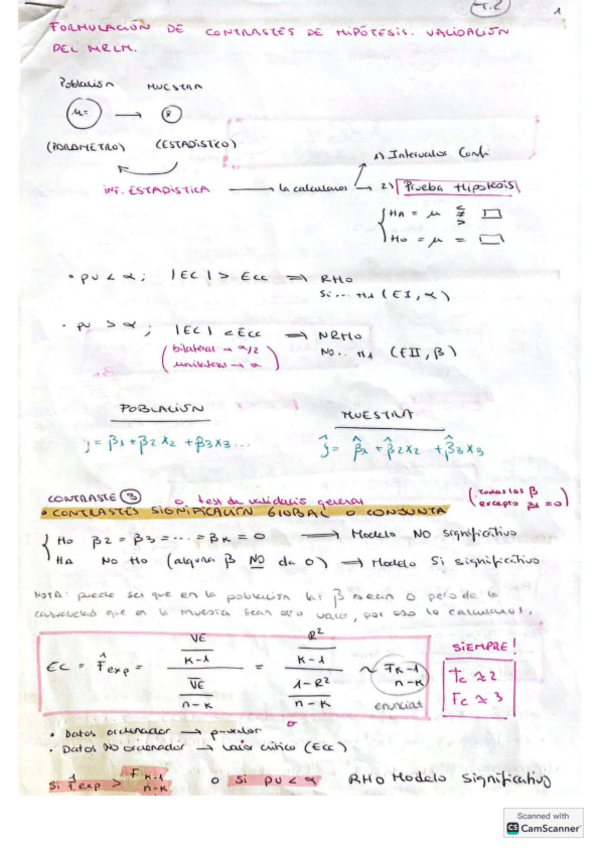 T.2
1
FORMULACIÓN DE CONTRASTES DE HIPÓTESIS. VALIDACIÓN
DEL MRLM.
Población MUESTRA
μ= → x̄
(PARÁMETRO) (ESTADÍSTICO)
INF. ESTADÍSTICA → la calculamos → 1) Intervalos Conf.
2) Prueba Hipótesis
HA = μ ≤ ≠ > □
Ho = μ = □
• pv < α ; |EC| > Ecc ⟹ RHo
Si... HA (EI, α)
• pv > α ; |EC| < Ecc ⟹ NRHo
(bilateral → α/2 No.. HA (EII, β)
unilateral → α)
POBLACIÓN MUESTRA
y = β1 + β2 X2 + β3 X3 ... ŷ = β̂1 + β̂2 X2 + β̂3 X3
CONTRASTE 3 o test de validación general (todas las β
• CONTRASTES SIGNIFICACIÓN GLOBAL O CONJUNTA excepto β1 = 0)
Ho β2 = β3 = ... = βK = 0 → Modelo NO significativo
HA No Ho (alguna β NO da 0) → Modelo Si significativo
NOTA: puede ser que en la población las β sean 0 pero de la
casualidad que en la muestra sean otro valor, por eso lo calculamos.
EC = F̂exp = VE / K-1 / VE / n-K = R² / K-1 / 1-R² / n-K ~ F K-1 n-K
enunciado
SIEMPRE!
Tc ≈ 2
Fc ≈ 3
o
• Datos ordenador → p-valor
• Datos NO ordenador → valor crítico (Ecc)
Si F̂exp > F K-1 n-K o Si pv < α RHo Modelo Significativo
Scanned with
CS CamScanner